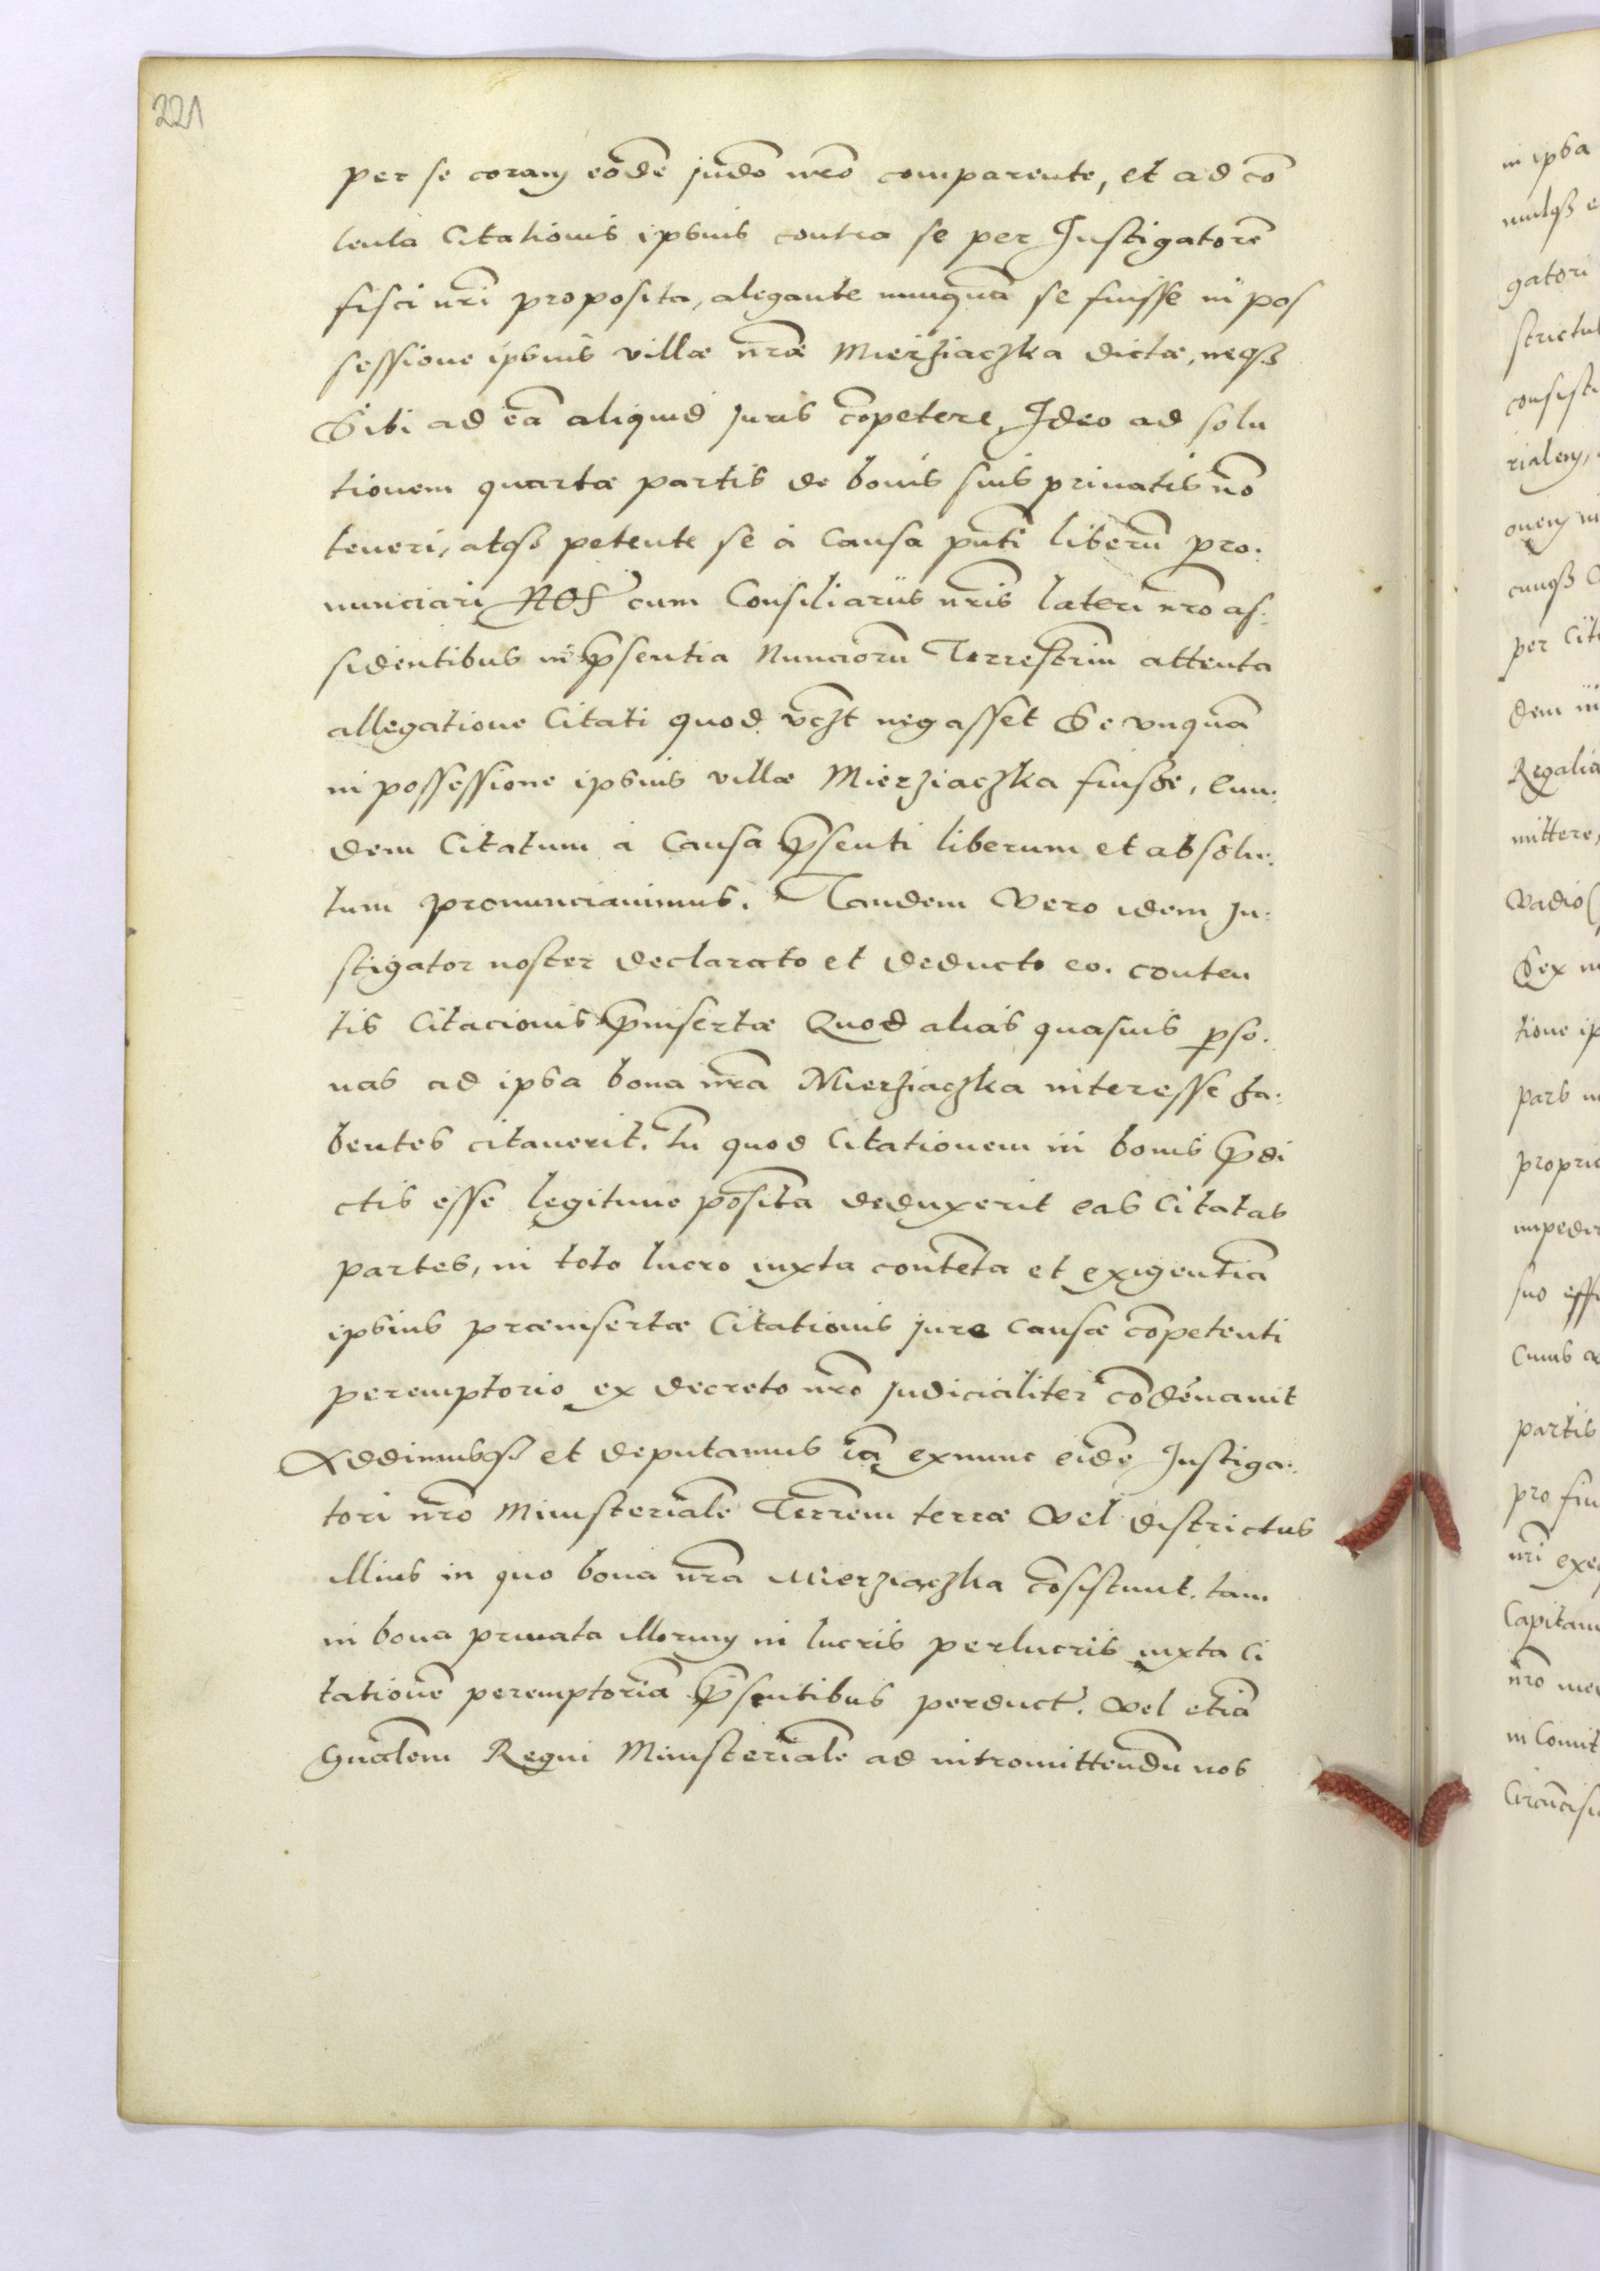 221
per se coram eodē judō nrō comparente, et ad cō
tenta Citationis ipsius contra se per Instigatorē
fisci nrī proposita, alegante nunquā se fuisse in pos
sessione ipsius villæ nrae Mierziaczka dictæ, neqȝ
Sibi ad eā aliquid juris cōpetere, Ideo ad solu
tionem quartæ partis de bonis suis priuatis nō
teneri, atqȝ petente se à Causa pntī liberū pro:
nunciari NOS cum Consiliariis nrīs lateri nrō as:
sidentibus in p̄sentia Nunciorū Terrestriū attenta
allegatione Citati quod negasset Se vnquā
in possessione ipsius villæ Mierziaczka fuisse, Eun:
dem Citatum à Causa p̄senti liberum et absolu:
tum pronunciauimus. Tandem Vero idem In:
stigator noster declarato et deducto eo. conten
tis Citacionis p̄insertæ Quod alias quasuis pso:
nas ad ipsa bona nrā Mierziaczka interesse ha:
bentes citauerit. Tū quod Citationem in bonis p̄di
ctis esse legitime positā deduxerit eas Citatas
partes, in toto lucro iuxta contēta et exigentiā
ipsius præinsertæ Citationis jure Causæ cōpetenti
peremptorio ex decreto nrō judicialiter cōdēnauit
Addimusqȝ et deputamus iā exnunc eidē Instiga:
tori nrō Ministerialē Terrem terræ Vel districtus
illius in quo bona nrā Mierziaczka cōsistunt. tam
in bona priuata illorum in lucris perlucris iuxta Ci
tationē peremptoriā p̄sentibus perduct. Vel etiā
Gnālem Regni Ministerialē ad intromittendū nos
in ipsa
gatori
strictu
consist
rialem,
per Cit
dem in
Regalia
mittere,
Vadio
Sex m
tione ip
pars in
propri
impedi
suo eff
partis
pro fin
nrī exe
Capitan
nrō
in Comit